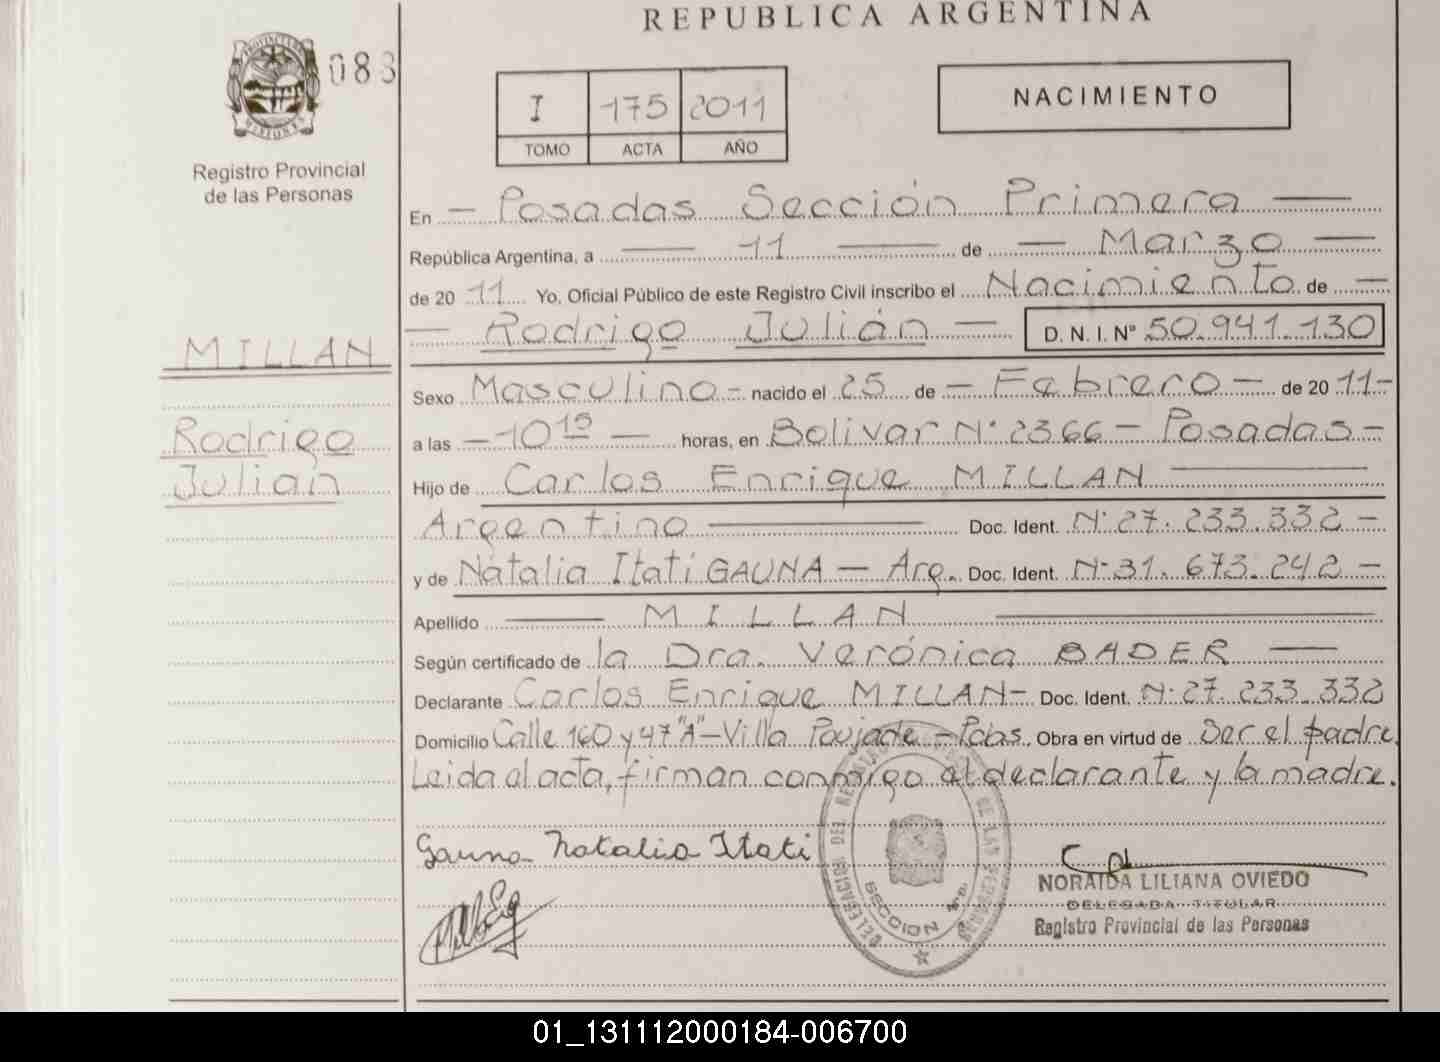 REPUBLICA ARGENTINA
PROVINCIA DE
MISIONES
088
Registro Provincial
de las Personas
I 175 2011
TOMO ACTA AÑO
NACIMIENTO
En - Posadas Sección Primera -
República Argentina, a - 11 - de - Marzo -
de 20 11 Yo, Oficial Público de este Registro Civil inscribo el Nacimiento de -
- Rodrigo Julián - D. N. I. Nº 50.941.130
MILLAN
Rodrigo
Julián
Sexo Masculino - nacido el 25 de - Febrero - de 20 11 -
a las - 10 15 - horas, en Bolivar Nº 2366 - Posadas -
Hijo de Carlos Enrique MILLAN
Argentino Doc. Ident. Nº 27.233.332 -
y de Natalia Itati GAUNA - Arg. Doc. Ident. Nº 31.673.242 -
Apellido - MILLAN
Según certificado de la Dra. Verónica BADER -
Declarante Carlos Enrique MILLAN - Doc. Ident. Nº 27.233.332
Domicilio Calle 160 y 47 "A" - Villa Poujade - Pdas. Obra en virtud de Ser el padre.
Leida al acta, firman conmigo el declarante y la madre.
Gauna Natalia Itati
DELEGACION DEL REGISTRO DE LAS PERSONAS
SECCION 1ª
NORAIDA LILIANA OVIEDO
DELEGADA TITULAR
Registro Provincial de las Personas
01_131112000184-006700